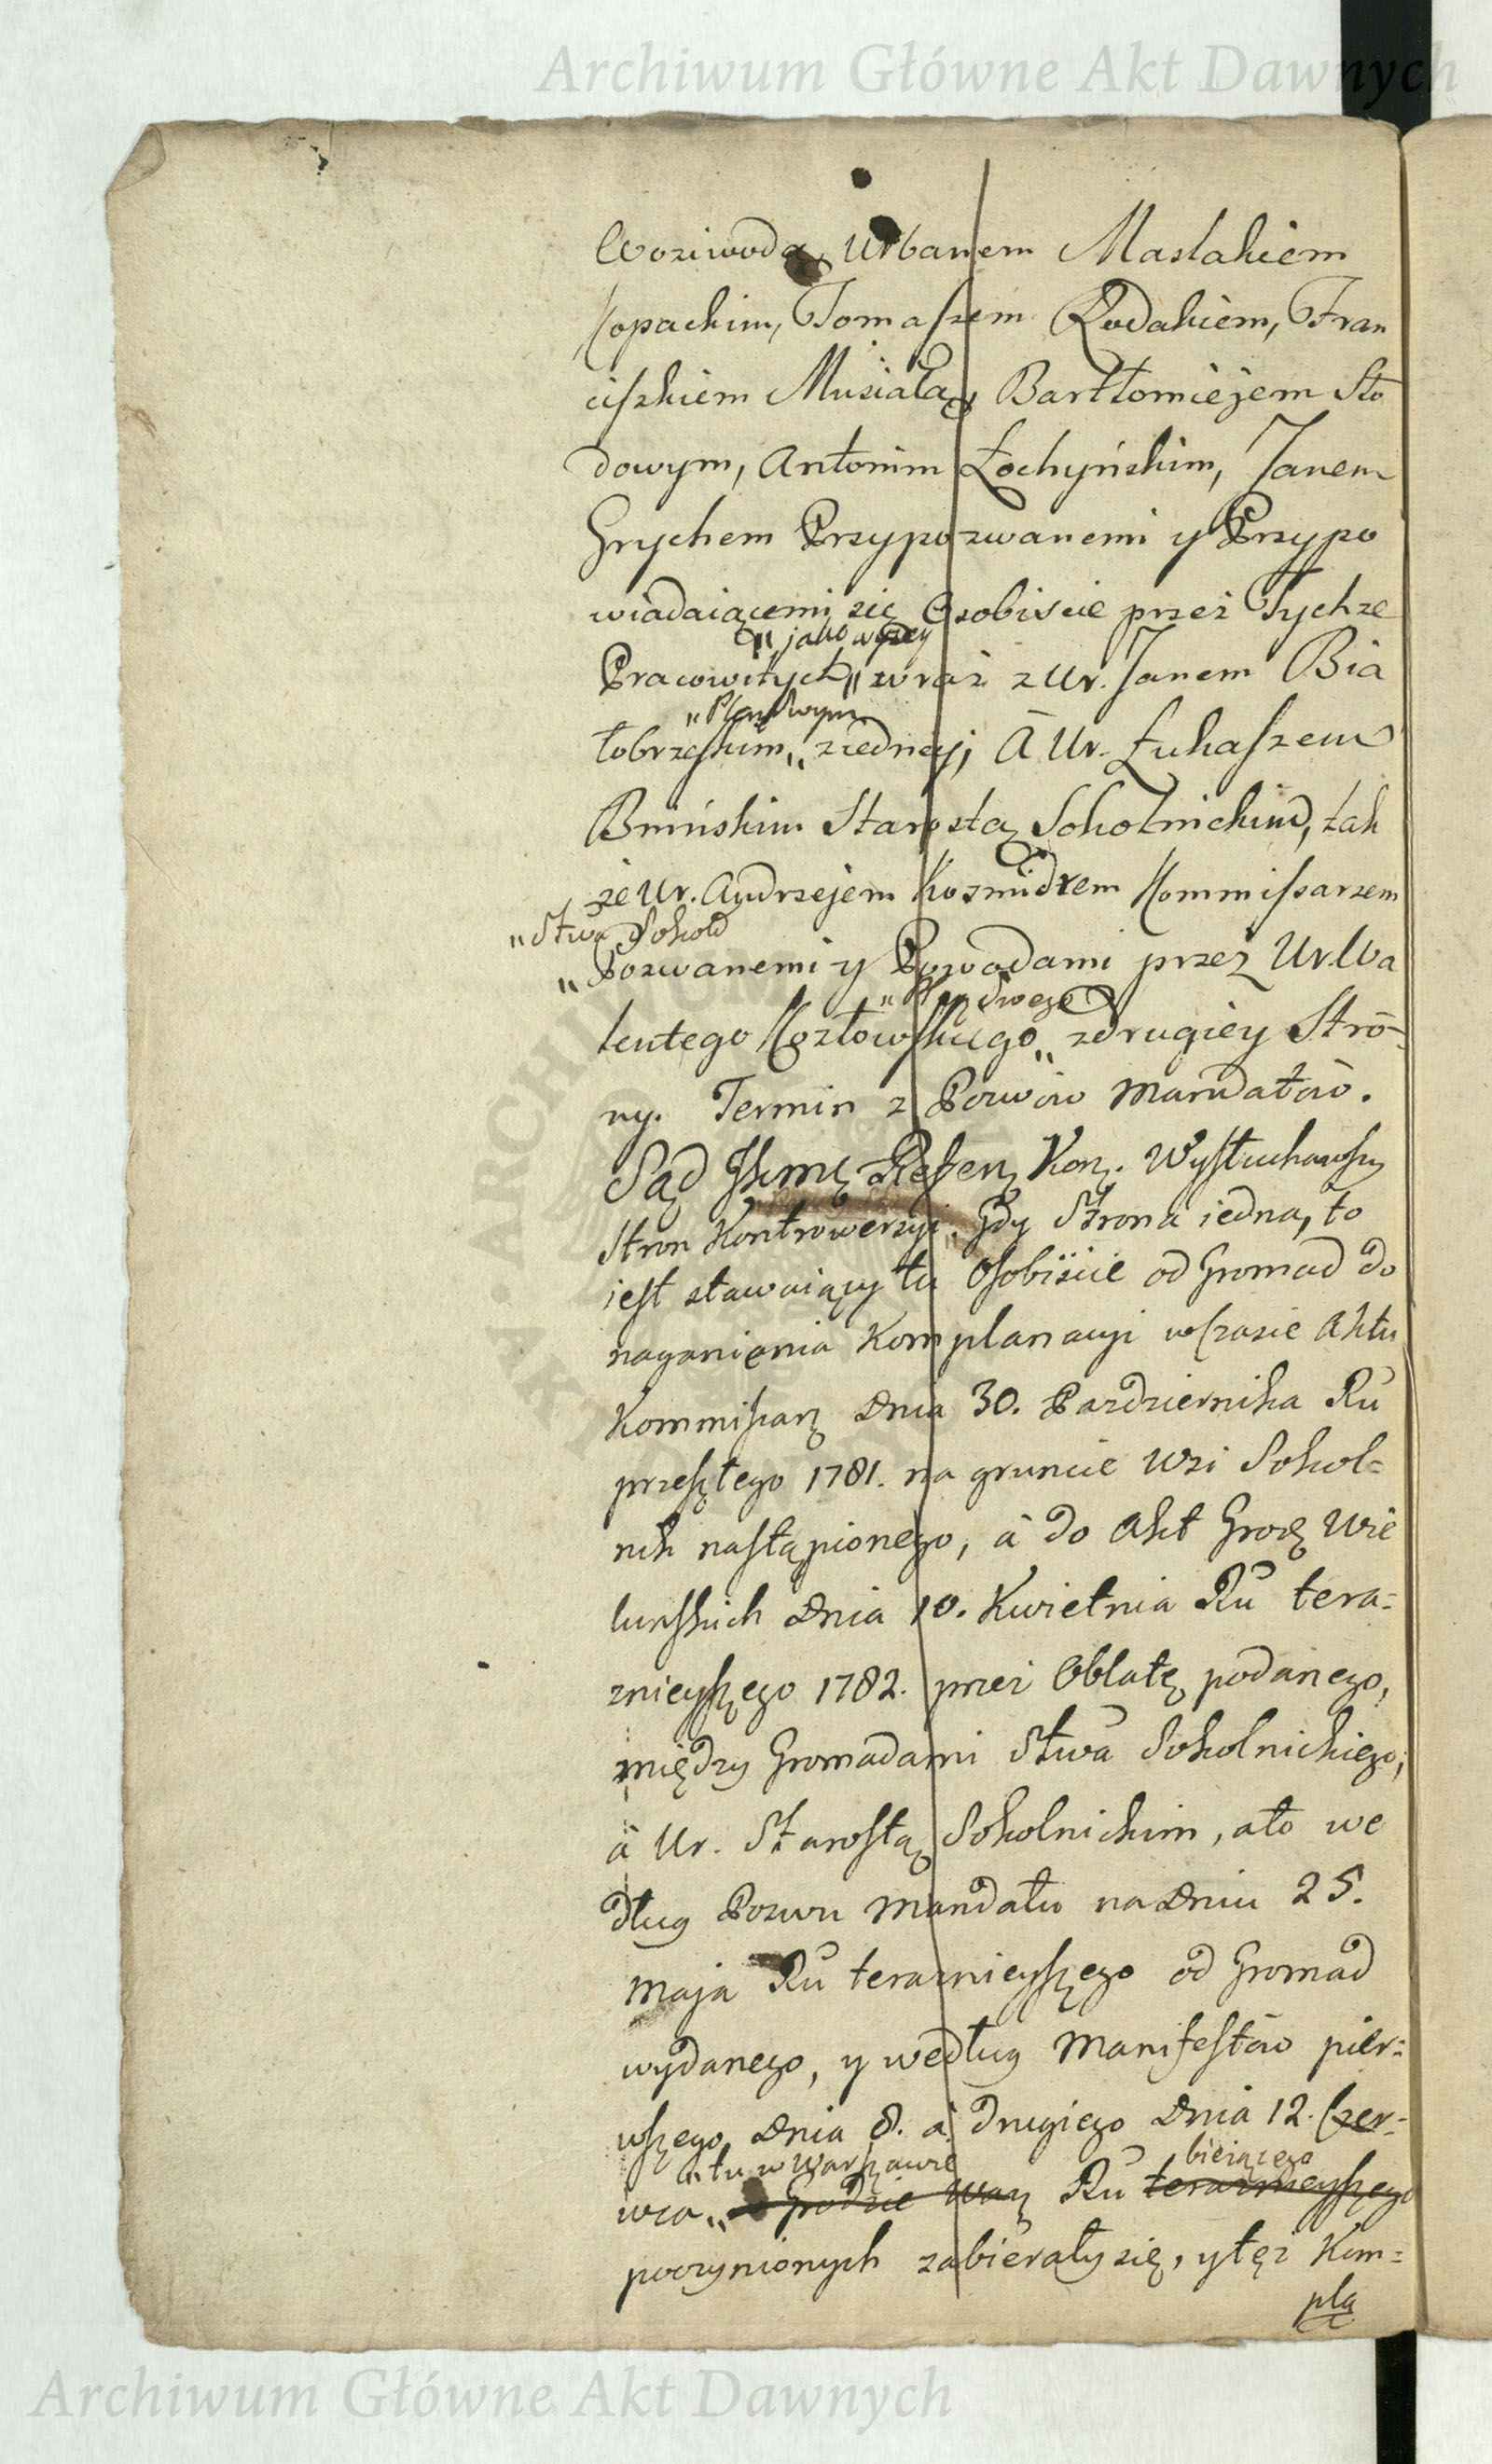 Archiwum Główne Akt Dawnych
Woziwodą, Urbanem Maslakiem
Kopackim, Tomaszem Rodakiem, Fran
ciszkiem Musiałą, Bartłomiejem Sto
dowym, Antonim Łochyńskim, Janem
Grychem Przypozwanemi y Przypo
wiadaiącemi się Osobiscie przez Tychże
„ jako wyzey
Pracowitych „ wraz z Ur. Janem Bia
„ Plądwym
łobrzeskim „ z iedney; à Ur. Łukaszem
Bnińskim Starostą Sokolnickim, tak
że Ur. Andrzejem Kozmidrem Kommissarzem
„ Stwa Sokol
„ Pozwanemi y Powodami przez Ur. Wa
„ Plądwego
lentego Kozłowskiego „ z drugiey Stro-
ny. Termin z Pozwów Mandatów.
Sąd JKmę Refeŗ Koŗ. Wysłuchawszy
Stron Kontrowersyi. Gdy Strona iedna, to
iest stawaiący tu Osobiście od Gromad do
naganienia Komplanacyi w Czasie Aktu
Kommissarż Dnia 30. Pazdziernika Ru
przeszłego 1781. na gruncie Wsi Sokol=
nik nastąpionego, à do Akt Grodz Wie
lunskich Dnia 10. Kwietnia Ru tera=
znieyszego 1782. przez Oblatę podanego,
między Gromadami Stwa Sokolnickiego,
à Ur. Starostą Sokolnickim, a to we
dług Pozwu Mandatu na Dniu 25.
Maja Ru teraznieyszego od Gromad
wydanego, y według Manifestów pier=
wszego Dnia 8. à drugiego Dnia 12. Czer=
„ tu w Warszawie bieiącego
wca „ w Grodzie War Ru teraznieyszego
poczynionych zabierały się, y też Kom=
pla
Archiwum Główne Akt Dawnych